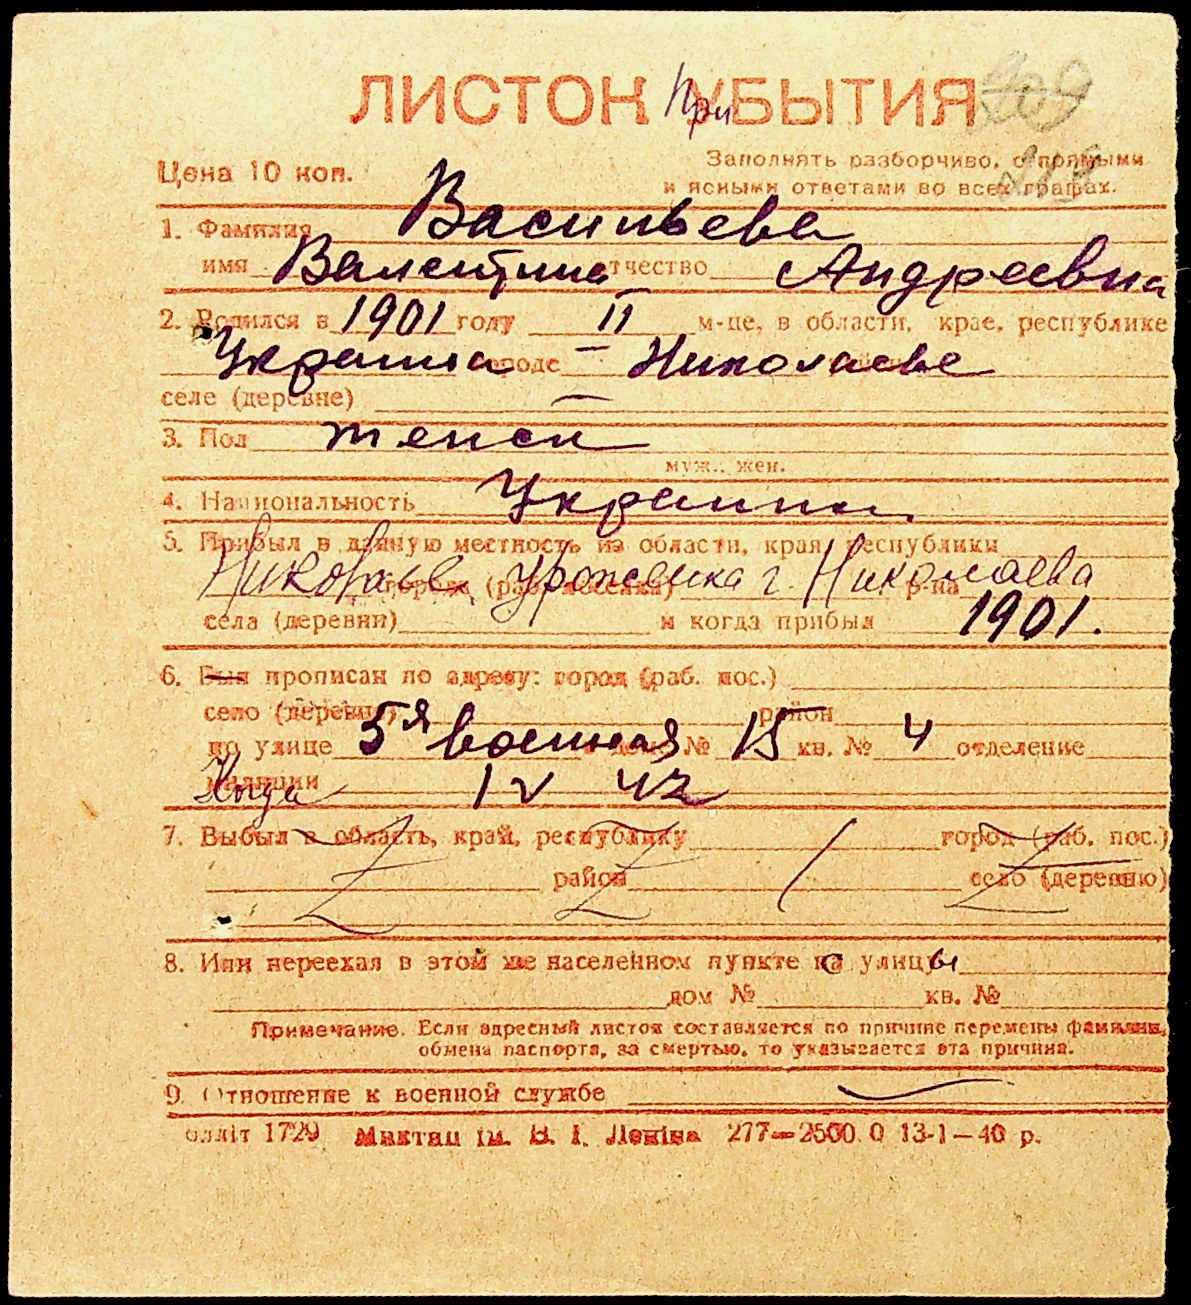 ЛИСТОК При УБЫТИЯ 209
Цена 10 коп.
Заполнять разборчиво, с прямыми
и ясными ответами во всех графах. 213
1. Фамилия Васильева
имя Валентина отчество Андреевна
2. Родился в 1901 году II м-це, в области, крае, республике
Украина городе — Николаеве
селе (деревне) —
3. Пол женск
муж., жен.
4. Национальность Украинка
5. Прибыл в данную местность из области, края, республики
Николаев уроженка г. Николаева
города (раб. поселка) р-на
села (деревни) и когда прибыл 1901.
6. Был прописан по адресу: город (раб. пос.)
село (деревне) район
по улице 5я военная дом № 15 кв. № 4 отделение
милиции
Когда IV 42
7. Выбыл в область, край, республику город (раб. пос.)
район село (деревню)
8. Или переехал в этом же населенном пункте с улицы
дом № кв. №
Примечание. Если адресный листок составляется по причине перемены фамилии,
обмена паспорта, за смертью, то указывается эта причина.
9. Отношение к военной службе —
блліт 1729 Миктац ім. В. І. Леніна 277—2500.0 13-1—40 р.